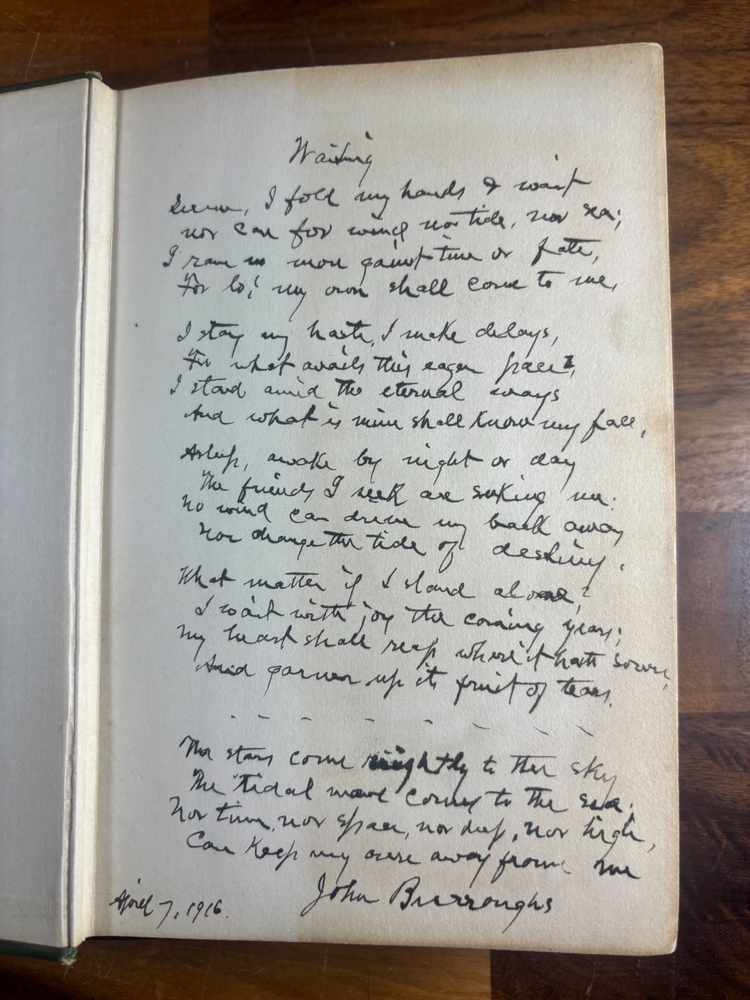 Waiting
Serene, I fold my hands & wait
nor care for wind nor tide, nor sea;
I rave no more gainst time or fate,
For lo! my own shall come to me,
I stay my haste, I make delays,
For what avails this eager pace?
I stand amid the eternal ways
And what is mine shall know my face,
Asleep, awake by night or day
The friends I seek are seeking me:
No wind can drive my bark away
Nor change the tide of destiny.
What matter if I stand alone?
I wait with joy the coming years;
My heart shall reap where it hath sown,
And garner up its fruit of tears.
- - - - - - - -
The stars come nightly to the sky
The tidal wave comes to the sea.
Nor time, nor space, nor deep, nor high,
Can keep my own away from me
John Burroughs
April 7, 1916.